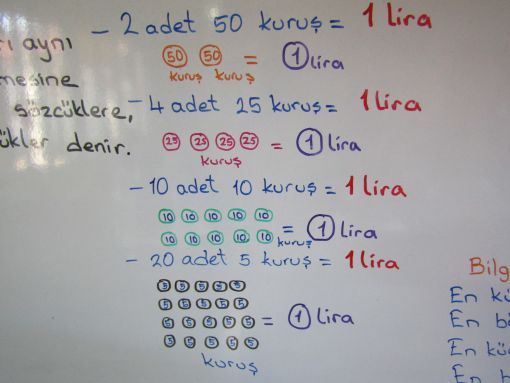 - 2 adet 50 kuruş = 1 lira
50 50 = 1 lira
kuruş kuruş
- 4 adet 25 kuruş = 1 lira
25 25 25 25 = 1 lira
kuruş
- 10 adet 10 kuruş = 1 lira
10 10 10 10 10
10 10 10 10 10 = 1 lira
kuruş
- 20 adet 5 kuruş = 1 lira
5 5 5 5 5
5 5 5 5 5
5 5 5 5 5 = 1 lira
5 5 5 5 5
kuruş
aynı
mesine
sözcüklere,
denir.
Bilg
En kü
En bü
En küç
En b